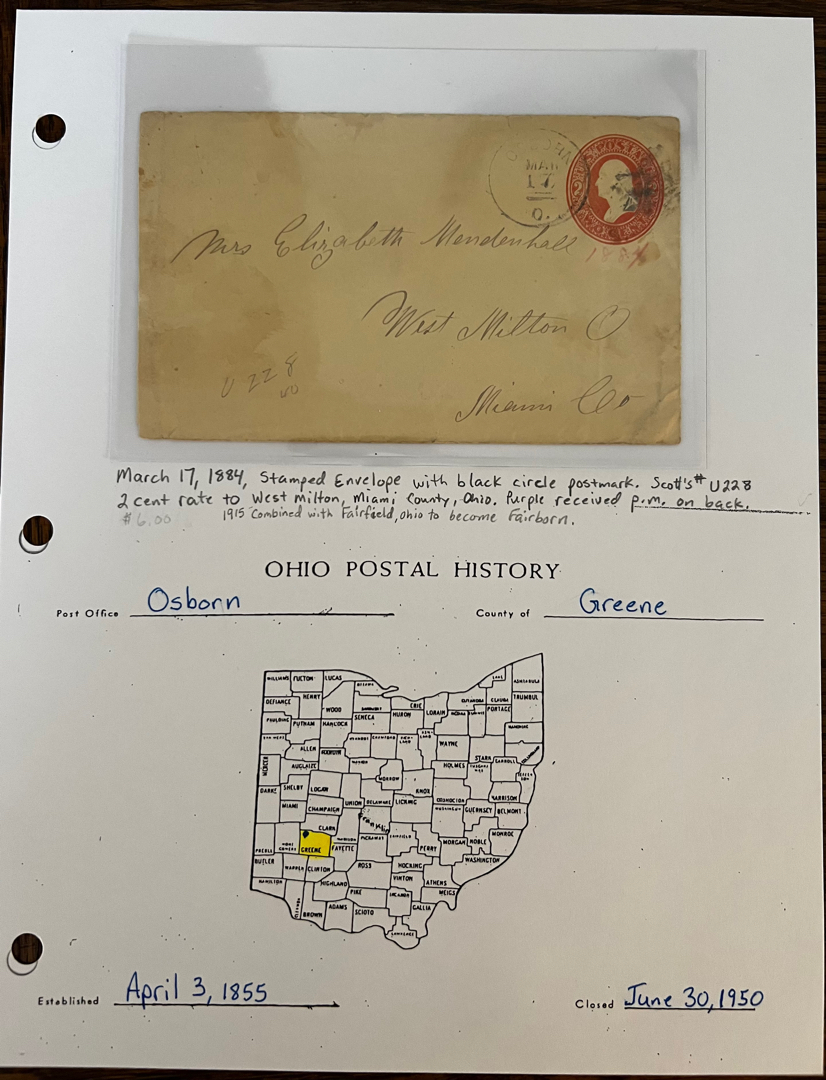 MAR
17
O.
Mrs Elizabeth Mendenhall
1884
West Milton O
U228
Miami Co
March 17, 1884, Stamped Envelope with black circle postmark. Scott's # U228
2 cent rate to West Milton, Miami County, Ohio. Purple received p.m. on back.
$6.00 1915 Combined with Fairfield, Ohio to become Fairborn.
OHIO POSTAL HISTORY
Post Office Osborn County of Greene
WILLIAMS FULTON LUCAS LAKE ASHTABULA
DEFIANCE HENRY WOOD ERIE LORAIN PORTAGE TRUMBUL
PAULDING PUTNAM HANCOCK SENECA HURON
ALLEN WAYNE STARK CARROLL
MERCER AUGLAIZE HOLMES
DARKE SHELBY LOGAN MORROW KNOX HARRISON
MIAMI CHAMPAIGN UNION DELAWARE LICKING COSHOCTON GUERNSEY BELMONT
CLARK Franklin MONROE
PREBLE GREENE FAYETTE PERRY MORGAN NOBLE
BUTLER WARREN CLINTON ROSS HOCKING WASHINGTON
HAMILTON HIGHLAND PIKE VINTON ATHENS MEIGS
BROWN ADAMS SCIOTO GALLIA
Established April 3, 1855 Closed June 30, 1950